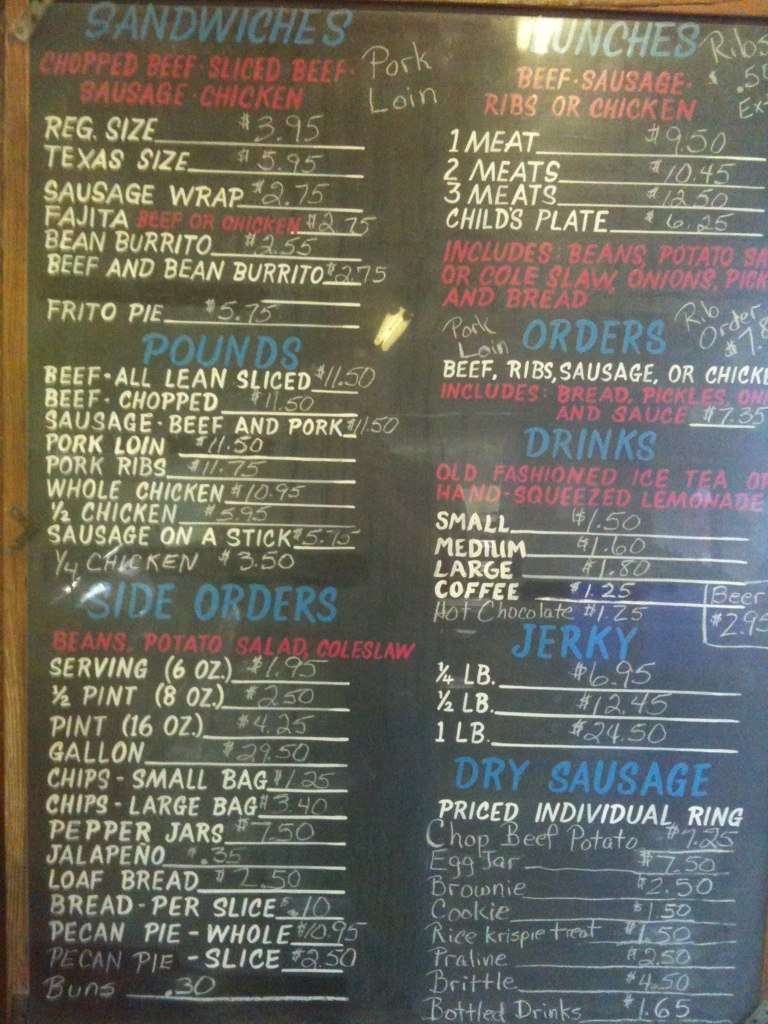 SANDWICHES
CHOPPED BEEF · SLICED BEEF ·
SAUSAGE · CHICKEN
Pork
Loin
REG. SIZE $3.95
TEXAS SIZE $5.95
SAUSAGE WRAP $2.75
FAJITA BEEF OR CHICKEN $2.75
BEAN BURRITO $2.55
BEEF AND BEAN BURRITO $2.75
FRITO PIE $5.75
POUNDS
BEEF - ALL LEAN SLICED $11.50
BEEF - CHOPPED $11.50
SAUSAGE - BEEF AND PORK $11.50
PORK LOIN $11.50
PORK RIBS $11.75
WHOLE CHICKEN $10.95
½ CHICKEN $5.95
SAUSAGE ON A STICK $5.75
¼ CHICKEN $3.50
SIDE ORDERS
BEANS, POTATO SALAD, COLESLAW
SERVING (6 OZ.) $1.95
½ PINT (8 OZ.) $2.50
PINT (16 OZ.) $4.25
GALLON $29.50
CHIPS - SMALL BAG $1.25
CHIPS - LARGE BAG $3.40
PEPPER JARS $7.50
JALAPEÑO .35
LOAF BREAD $2.50
BREAD - PER SLICE $.10
PECAN PIE - WHOLE $10.95
PECAN PIE - SLICE $2.50
Buns .30
LUNCHES
Ribs
Ex
BEEF · SAUSAGE ·
RIBS OR CHICKEN
1 MEAT $9.50
2 MEATS $10.45
3 MEATS $12.50
CHILD'S PLATE $6.25
INCLUDES: BEANS, POTATO SA
OR COLE SLAW, ONIONS, PICK
AND BREAD
Pork
Loin
ORDERS
Rib
Order
BEEF, RIBS, SAUSAGE, OR CHICKE
INCLUDES: BREAD, PICKLES, ONI
AND SAUCE $7.35
DRINKS
OLD FASHIONED ICE TEA OR
HAND-SQUEEZED LEMONADE
SMALL $1.50
MEDIUM $1.60
LARGE $1.80
COFFEE $1.25
Hot Chocolate $1.25
Beer
$2.95
JERKY
¼ LB. $6.95
½ LB. $12.45
1 LB. $24.50
DRY SAUSAGE
PRICED INDIVIDUAL RING
Chop Beef Potato $7.25
Egg Jar $7.50
Brownie $2.50
Cookie $1.50
Rice krispie treat $1.50
Praline $2.50
Brittle $4.50
Bottled Drinks $1.65